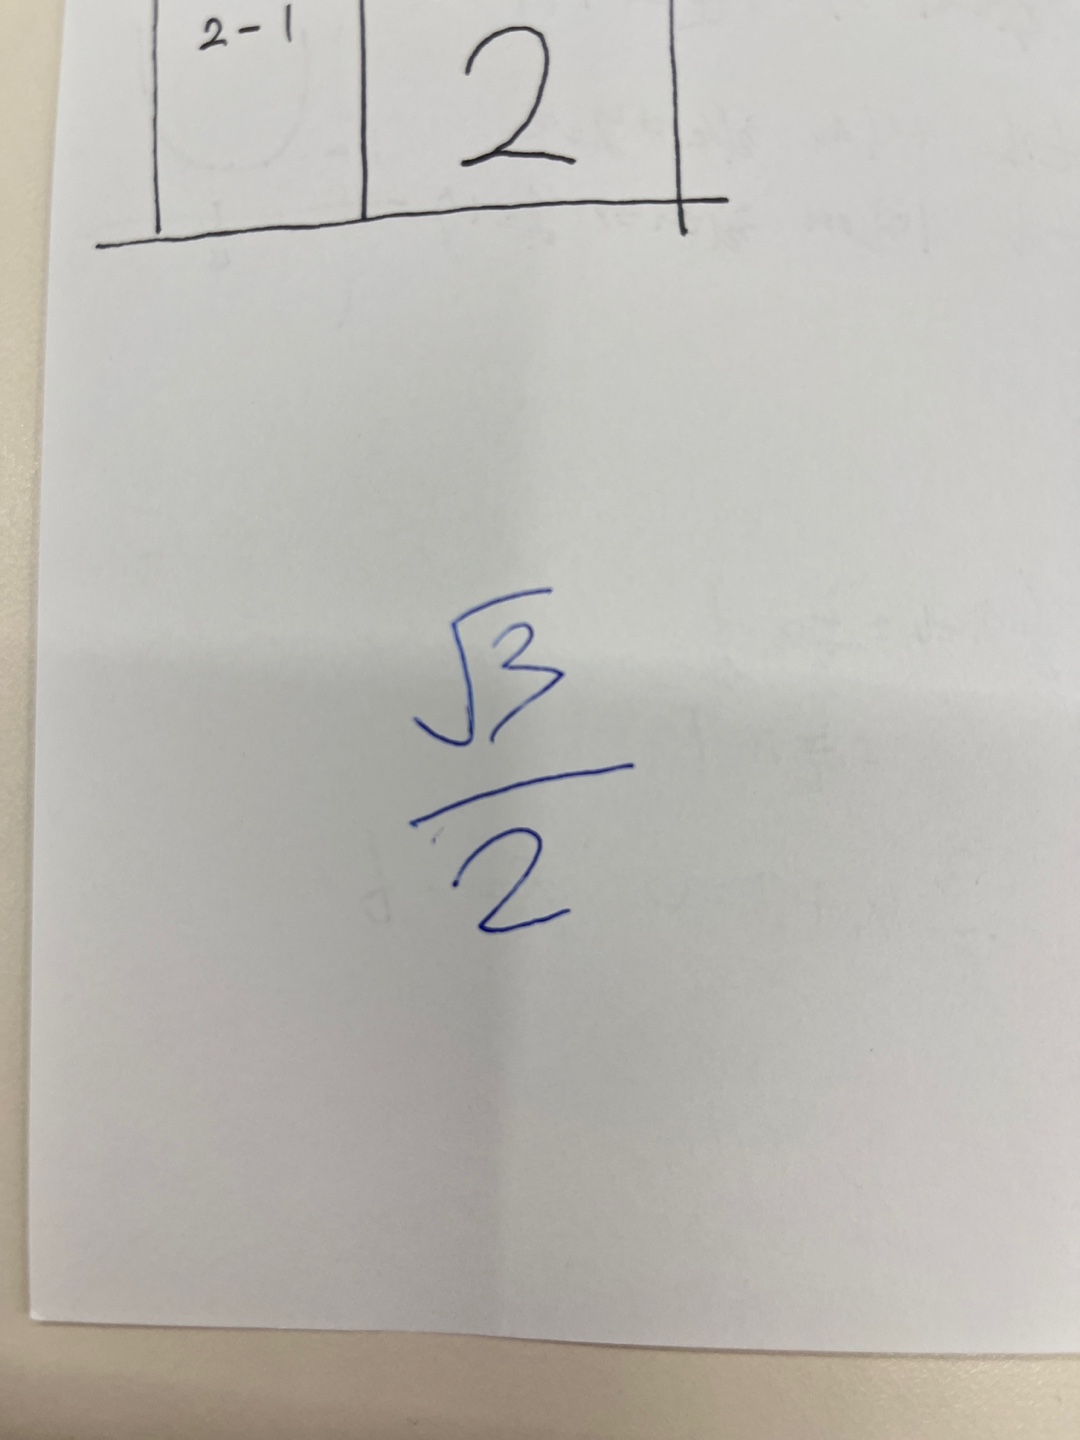 2-1 2
√3
2